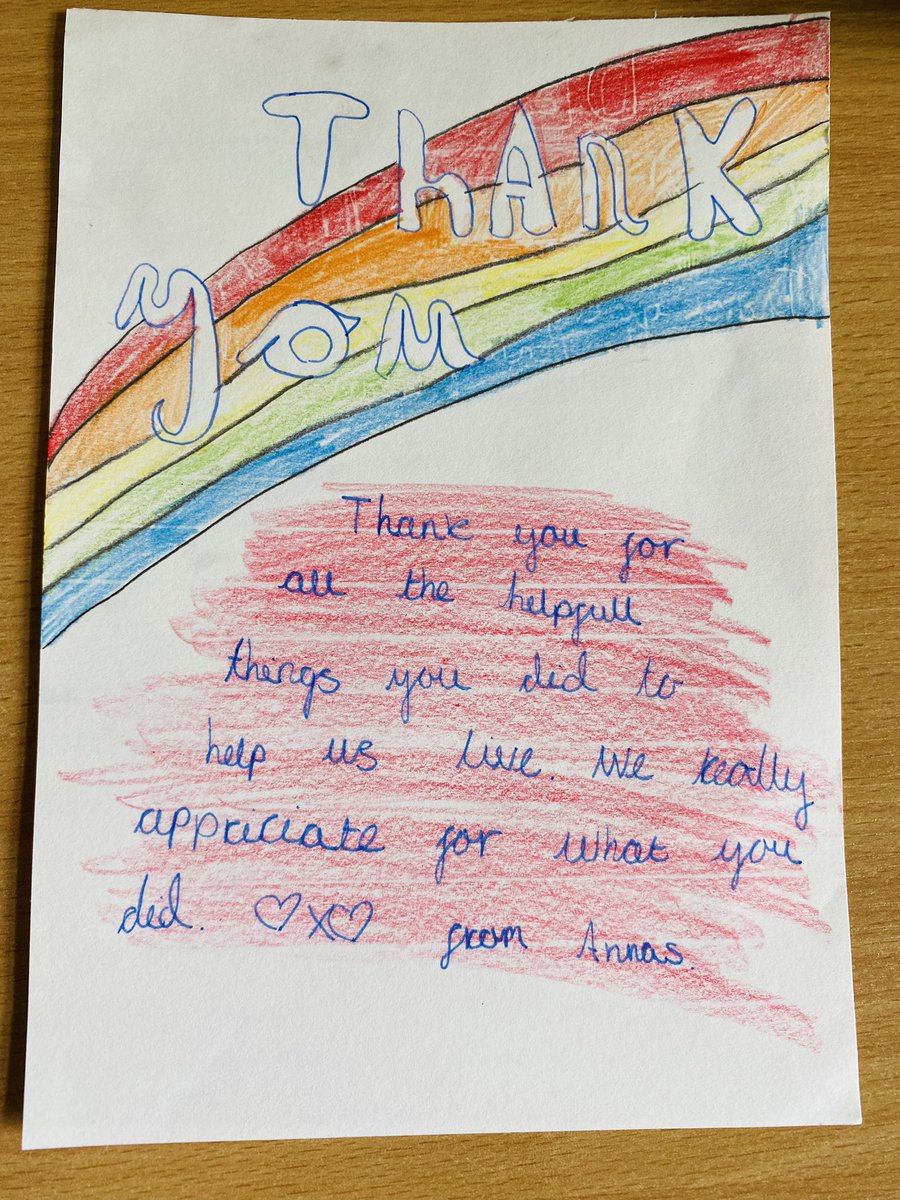 Thank
you
Thank you for
all the helpfull
things you did to
help us live. We really
appriciate for what you
did. ♡X♡ from Annas.